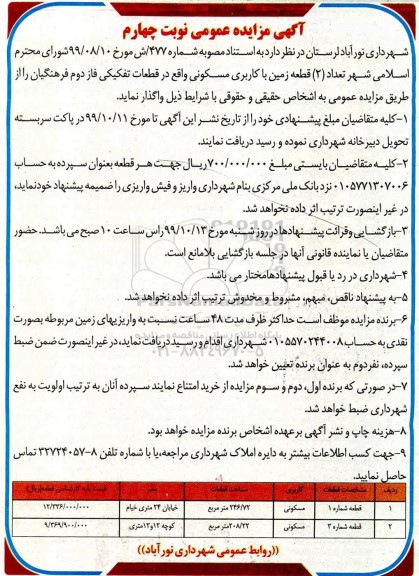 آگهی مزایده عمومی نوبت چهارم
شهرداری نورآباد لرستان در نظر دارد به استناد مصوبه شماره ۴۷۷/ش مورخ ۹۹/۰۸/۱۰ شورای محترم
اسلامی شهر تعداد (۲) قطعه زمین با کاربری مسکونی واقع در قطعات تفکیکی فاز دوم فرهنگیان را از
طریق مزایده عمومی به اشخاص حقیقی و حقوقی با شرایط ذیل واگذار نماید.
۱-کلیه متقاضیان مبلغ پیشنهادی خود را از تاریخ نشر این آگهی تا مورخ ۹۹/۱۰/۱۱ در پاکت سربسته
تحویل دبیرخانه شهرداری نموده و رسید دریافت نمایند.
۲-کلیه متقاضیان بایستی مبلغ ۷۰۰/۰۰۰/۰۰۰ ریال جهت هر قطعه بعنوان سپرده به حساب
۰۱۰۵۷۷۱۳۰۷۰۰۶ نزد بانک ملی مرکزی بنام شهرداری واریز و فیش واریزی را ضمیمه پیشنهاد خود نماید،
در غیر اینصورت ترتیب اثر داده نخواهد شد.
۳-بازگشایی و قرائت پیشنهادها در روز شنبه مورخ ۹۹/۱۰/۱۳ راس ساعت ۱۰ صبح می باشد. حضور
متقاضیان یا نماینده قانونی آنها در جلسه بازگشایی بلامانع است.
۴-شهرداری در رد یا قبول پیشنهادها مختار می باشد.
۵-به پیشنهاد ناقص، مبهم، مشروط و مخدوش ترتیب اثر داده نخواهد شد.
۶-برنده مزایده موظف است حداکثر ظرف مدت ۴۸ ساعت نسبت به واریز بهای زمین مربوطه بصورت
نقدی به حساب ۰۱۰۵۵۷۰۲۴۴۰۰۸ شهرداری اقدام و رسید دریافت نماید، در غیر اینصورت ضمن ضبط
سپرده، نفر دوم به عنوان برنده تعیین خواهد شد.
۷-در صورتی که برنده اول، دوم و سوم مزایده از خرید امتناع نمایند سپرده آنان به ترتیب اولویت به نفع
شهرداری ضبط خواهد شد.
۸-هزینه چاپ و نشر آگهی بر عهده اشخاص برنده مزایده خواهد بود.
۹-جهت کسب اطلاعات بیشتر به دایره املاک شهرداری مراجعه، یا با شماره تلفن ۸-۳۲۷۲۴۰۵۷ تماس
حاصل نمایید.
ردیف مشخصات قطعات کاربری مساحت قطعات معبر قیمت پایه کارشناسی قطعه(ریال)
۱ قطعه شماره ۱ مسکونی ۲۴۶/۷۲ متر مربع خیابان ۲۴ متری خیام ۱۲/۳۳۶/۰۰۰/۰۰۰
۲ قطعه شماره ۳ مسکونی ۲۰۸/۲۲ متر مربع کوچه ۱۲ و ۱۲ متری ۹/۳۶۹/۹۰۰/۰۰۰
((روابط عمومی شهرداری نورآباد))